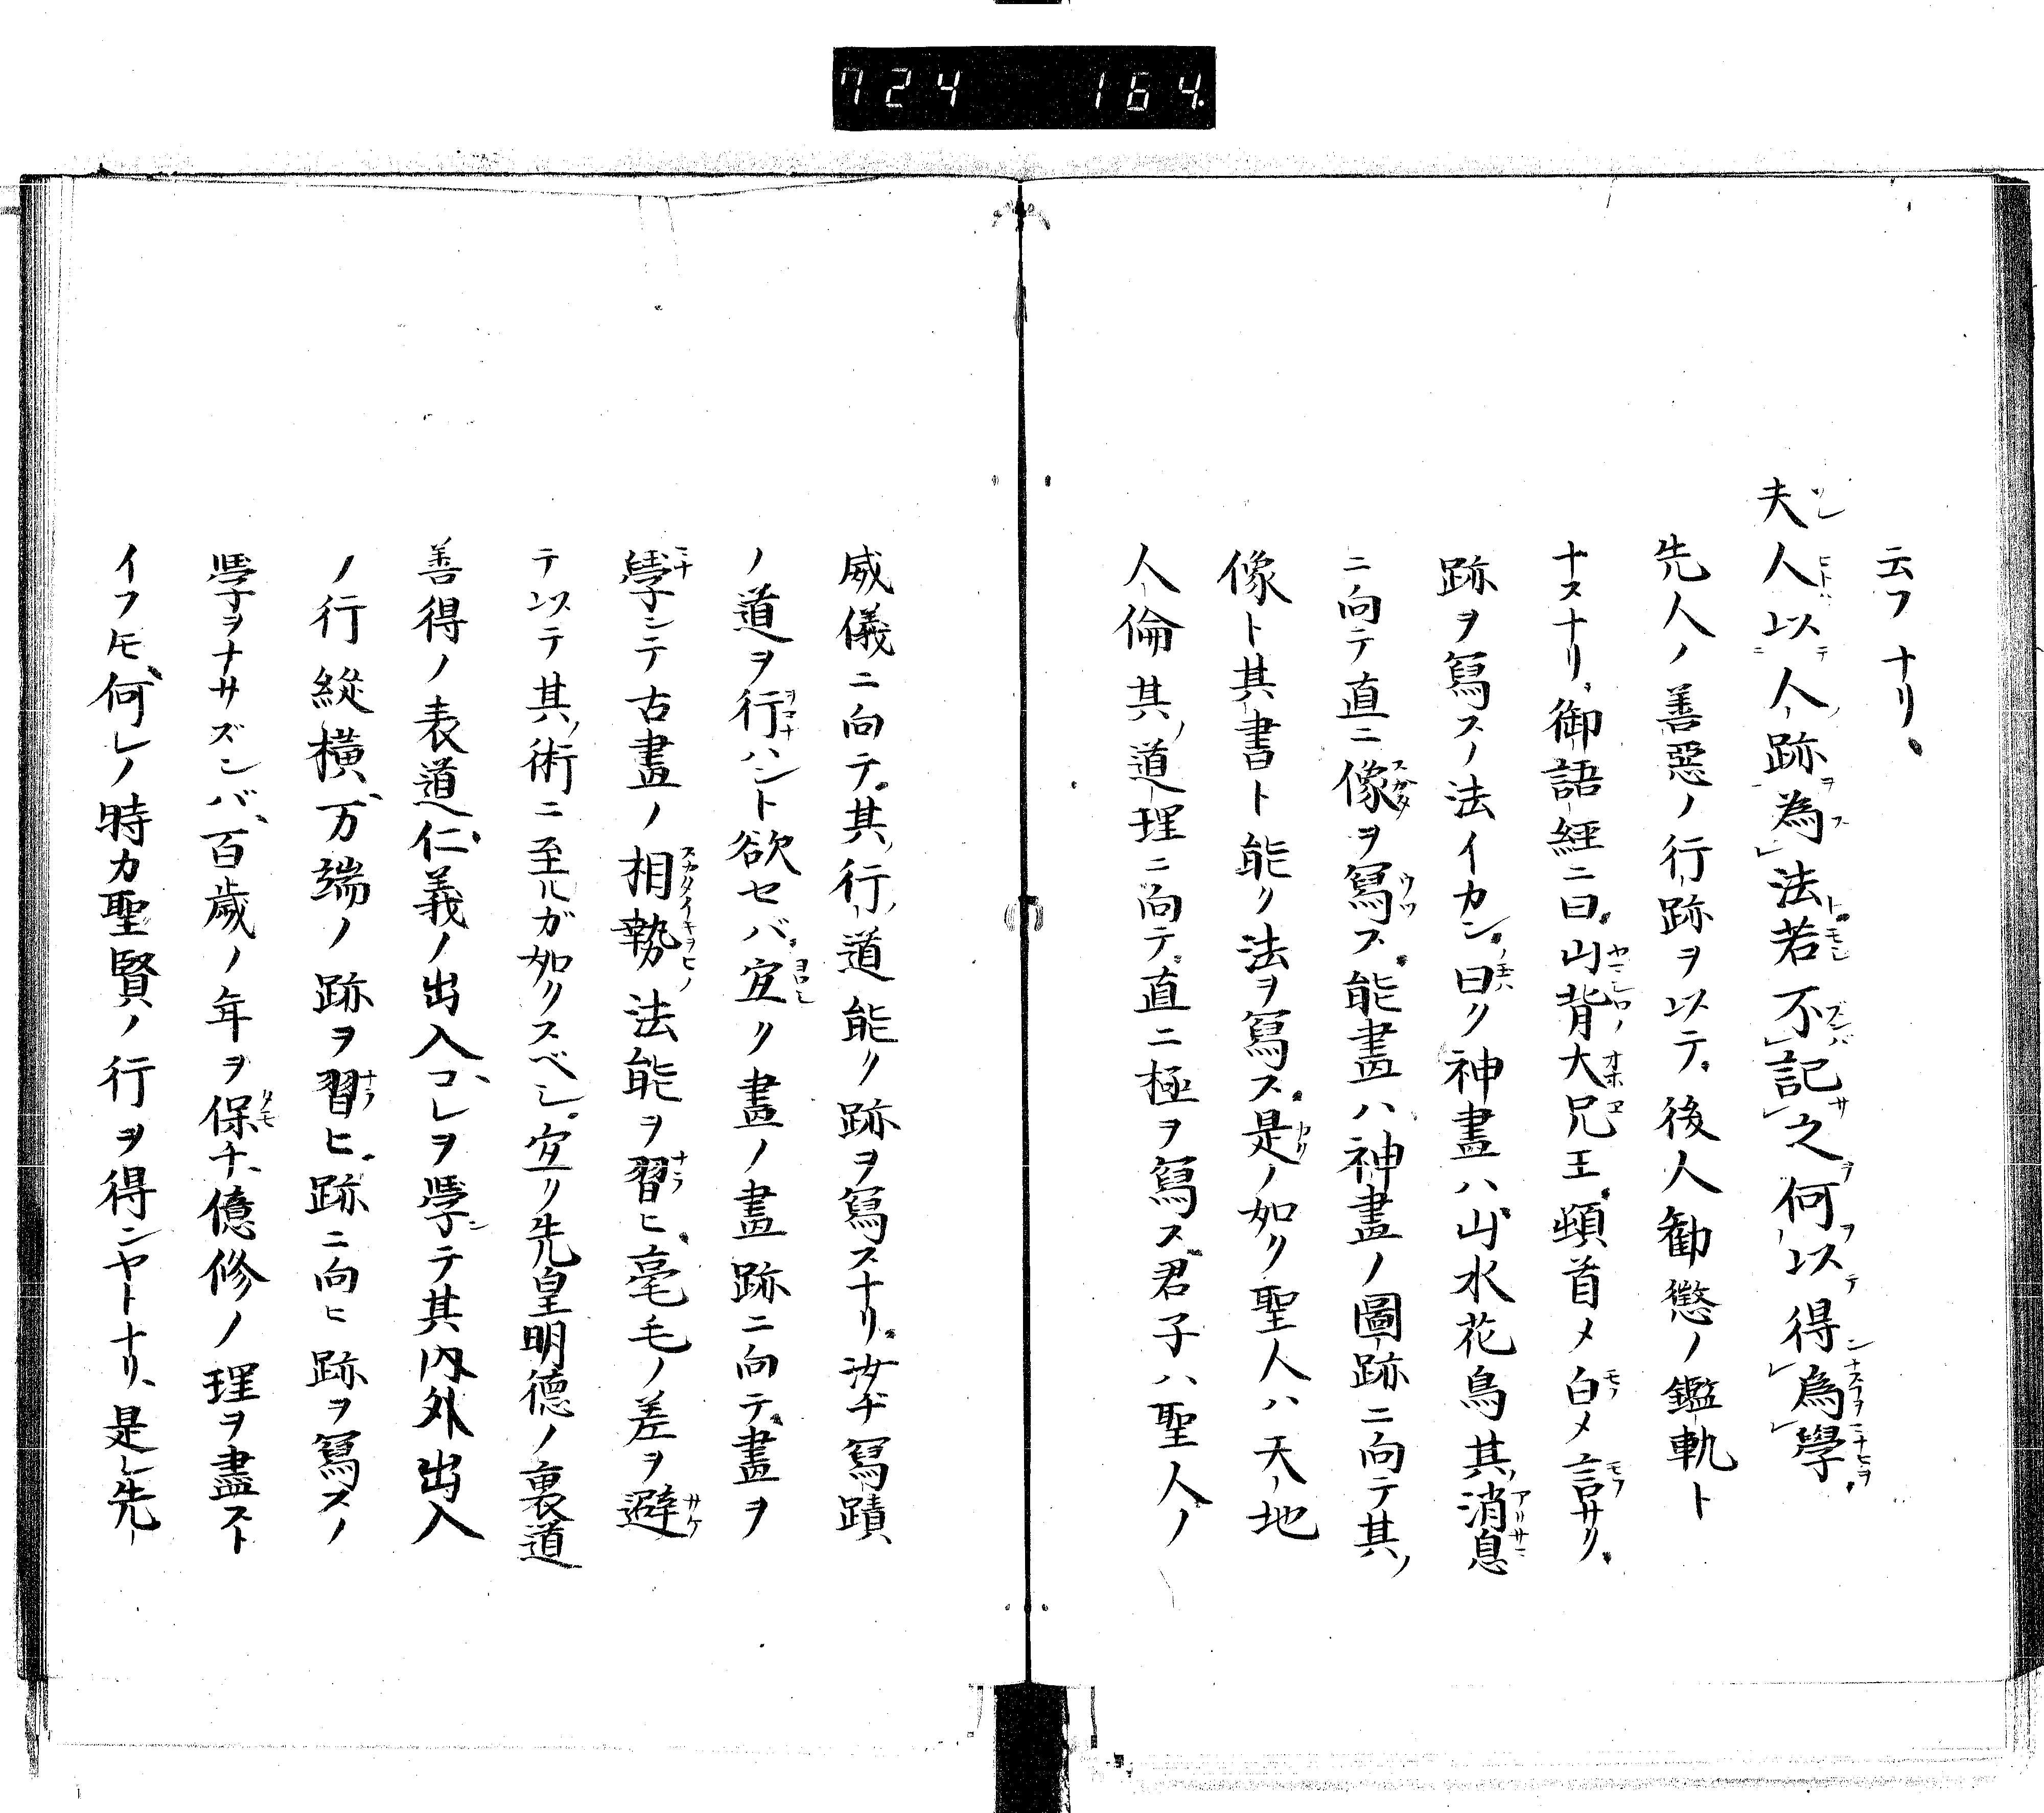 724 164
云フナリ、
夫人以人跡為法若不記之何以得為學
先人ノ善惡ノ行跡ヲ以テ後人勸懲ノ鑑軌ト
ナスナリ、御語經ニ曰山背大兄王頓首メ白メ言サク
跡ヲ寫スノ法イカン曰ク神畫ハ山水花鳥其消息
ニ向テ直ニ像ヲ寫ス能畫ハ神畫ノ圖跡ニ向テ其
像ト其書ト能ク法ヲ寫ス是ノ如ク聖人ハ天地
人倫其道理ニ向テ直ニ極ヲ寫ス君子ハ聖人ノ
威儀ニ向テ其行道能ク跡ヲ寫スナリ汝ヂ寫蹟
ノ道ヲ行ハント欲セバ宜ク畫ノ畫跡ニ向テ畫ヲ
學ンテ古畫ノ相勢法能ヲ習ヒ毫毛ノ差ヲ避
テ以テ其術ニ至ルガ如クスベシ宜リ先皇明德ノ裏道
善得ノ表道仁義ノ出入コレヲ學テ其内外出入
ノ行縱橫万端ノ跡ヲ習ヒ跡ニ向ヒ跡ヲ寫スノ
學ヲナサズンバ百歲ノ年ヲ保チ億修ノ理ヲ盡スト
イフモ何レノ時カ聖賢ノ行ヲ得ンヤトナリ、是レ先